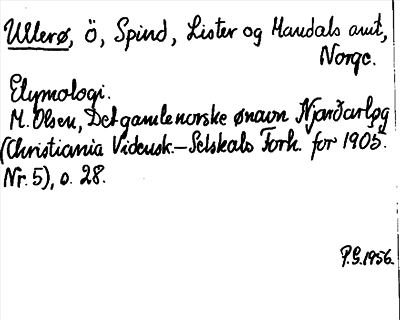 Ullerø, Ö, Spind, Lister og Mandals amt,
Norge.
Etymologi.
M. Olsen, Det gamle norske ønavn Njarðarlǫg
(Christiania Vidensk.-Selskabs Forh. for 1905.
Nr. 5), s. 28.
P.G. 1956.